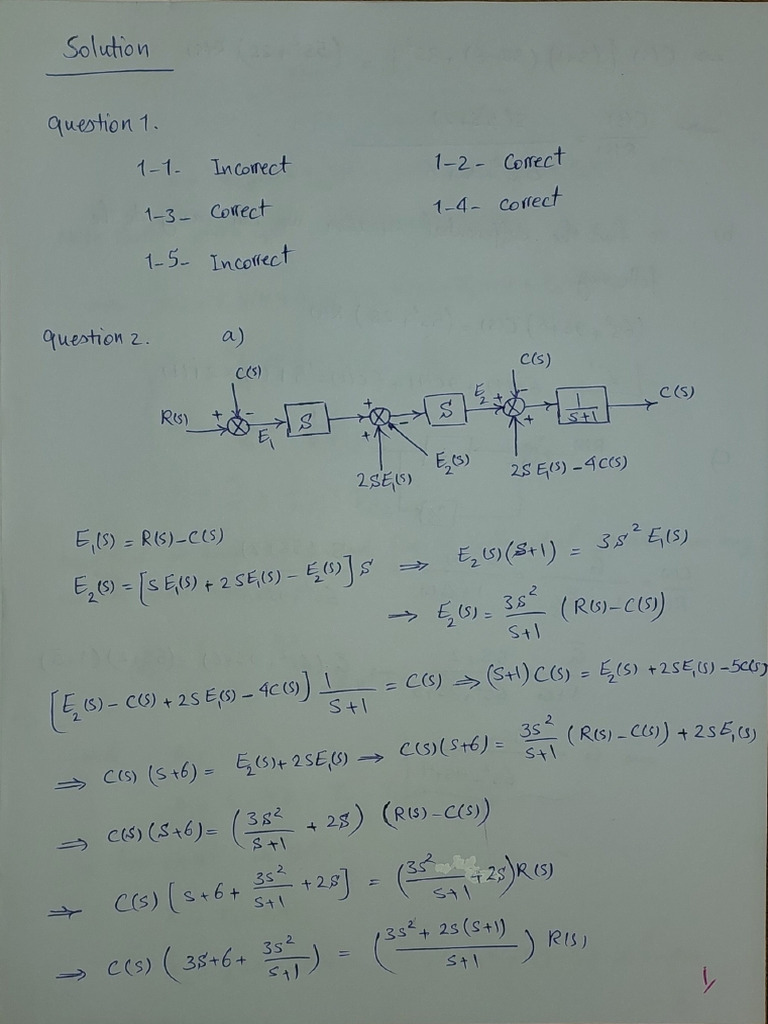 Solution
question 1.
1-1- Incorrect
1-2- Correct
1-3- Correct
1-4- Correct
1-5- Incorrect
question 2. a)
C(s) C(s)
R(s) + - E₁ S + + - S E₂ + - + 1/(s+1) C(s)
2SE₁(s) E₂(s) 2SE₁(s)-4C(s)
E₁(s) = R(s)-C(s)
E₂(s) = [SE₁(s) + 2SE₁(s) - E₂(s)] S ⇒ E₂(s)(S+1) = 3S² E₁(s)
⇒ E₂(s) = 3S²/(S+1) (R(s)-C(s))
[E₂(s) - C(s) + 2SE₁(s) - 4C(s)] 1/(S+1) = C(s) ⇒ (S+1) C(s) = E₂(s) + 2SE₁(s) - 5C(s)
⇒ C(s) (S+6) = E₂(s) + 2SE₁(s) ⇒ C(s)(S+6) = 3S²/(S+1) (R(s)-C(s)) + 2SE₁(s)
⇒ C(s)(S+6) = (3S²/(S+1) + 2S) (R(s)-C(s))
⇒ C(s) [S+6+ 3S²/(S+1) + 2S] = (3S²/(S+1) + 2S) R(s)
⇒ C(s) (3S+6+ 3S²/(S+1)) = ((3S² + 2S(S+1))/(S+1)) R(s)
1